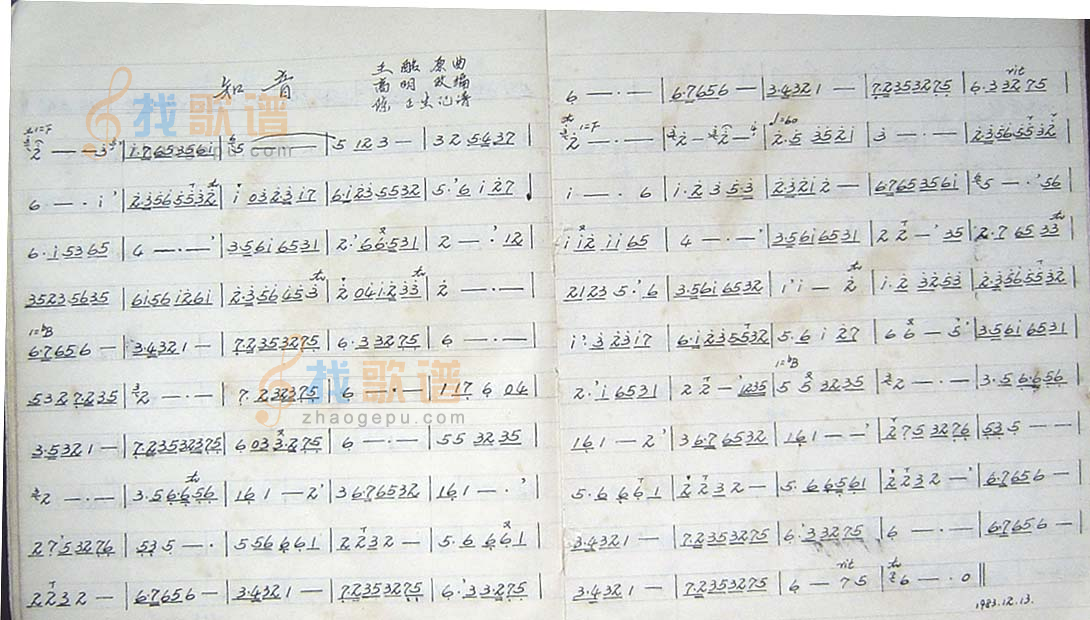 知音
王酸 原曲
高明 改编
1=F
6 — · i' | 2356 5532 | i 032317 | 6·1235532 | 5·'6 i 27
6·i5365 | 4 — · — ' | 3·5616531 | 2·'66·531 | 2 — ·' 12
3523·5635 | 61561261 | 2·356453 | 2 041·233 | 2 — · —
1=bB
6·7656 — | 3·4321 — | 7·2353275 | 6·33275 | 6 — · —
5327235 | 2 — · — | 7·232375 | 6 — · — | 1176 04
3·5321 — | 7·23532375 | 6033·275 | 6 — · — | 55 3235
2 — · — | 3·56·656 | 161 — 2' | 3676532 | 161 — · '
27'53276 | 535 — · | 556661 | 2232 — | 5·6 661
2232 — | 6·7656 — | 3·4321 — | 7·2353275 | 6·'33·275
rit
6 — · — | 6·7656 — | 3·4321 — | 7·2353275 | 6·33275
1=F
♩=60
i — — · 6 | i·2 35·3 | 23212 — | 67653561 | 5 — · '56
i i2 ii65 | 4 — · — ' | 35616531 | 22 — ' 35 | 2·7 6533
2123 5·'6 | 3·5616532 | i'i — 2 | i·2 3253 | 2·3565532
i'·32317 | 6·1235532 | 5·6 i 27 | 66 — 5' | 3·5616531
1=bB
2·'i6531 | 22 — '1235 | 55 3235 | 2 — · — | 3·56·656
161 — 2' | 36·76532 | 161 — — ' | 2753276 | 535 — —
5·6661 | 2232 — | 5·66561 | 2232 — ' | 6·7656 —
3·4321 — | 7·2353275 | 6·'33275 | 6 — · — | 6·7656 —
rit
3·4321 — | 7·2353275 | 6 — 75 | 6 — · 0 ‖
1983.12.13.
找歌谱
找歌谱
zhaogepu.com